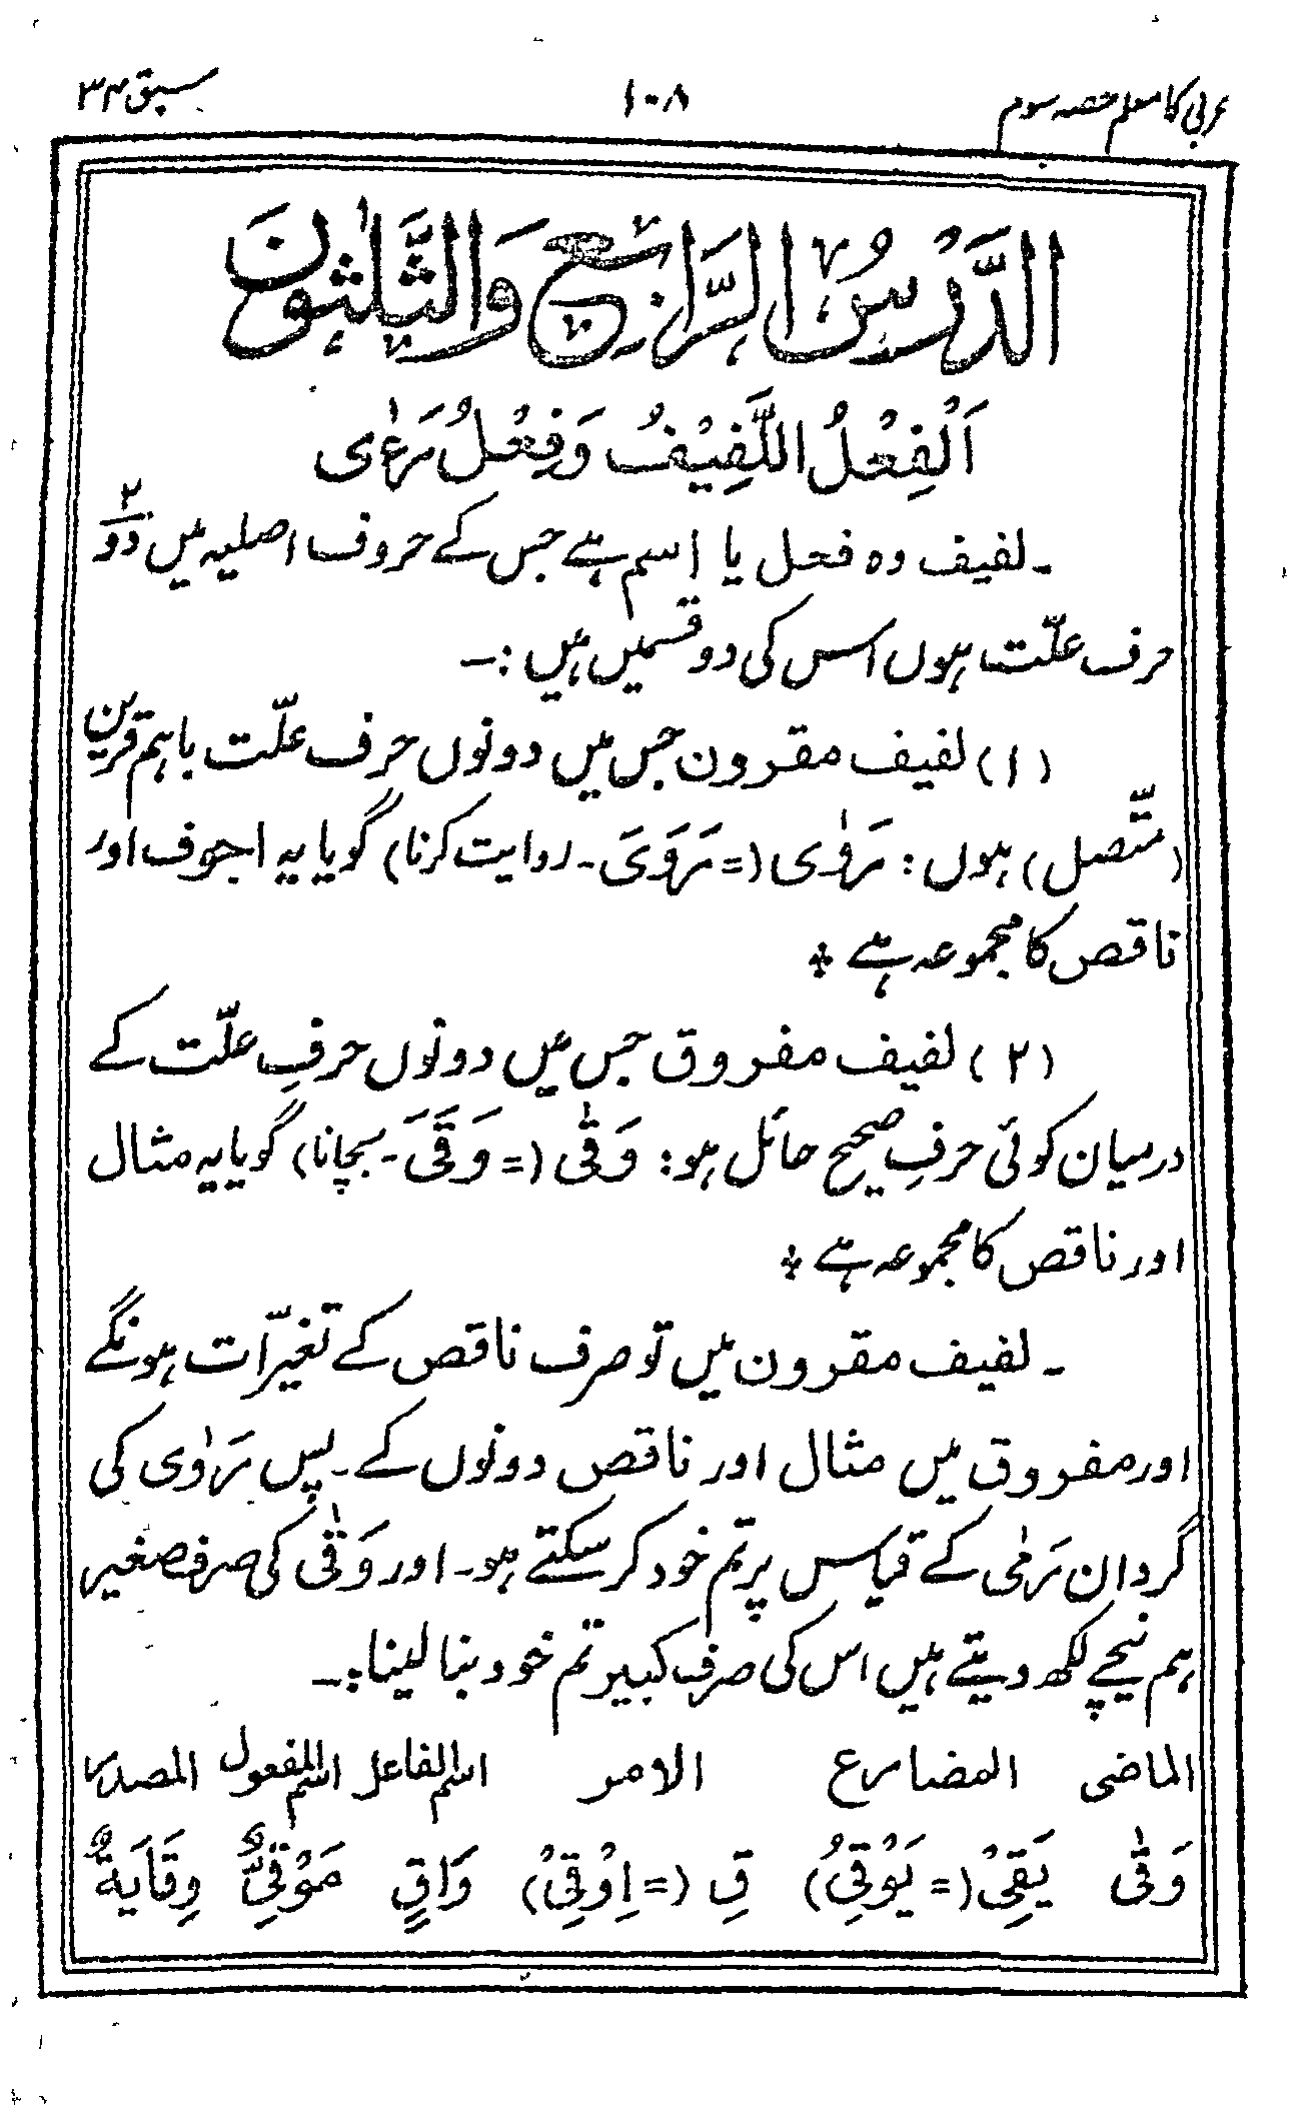 عربی کا معلم حصہ سوم ۱۰۸ سبق ۳۴
الدَّرْسُ الرَّابِعُ وَالثَّلٰثُونَ
اَلْفِعْلُ اللَّفِيْفُ وَفِعْلُ رَءٰى
۔ لفیف وہ فعل یا اسم ہے جس کے حروف اصلیہ میں دو۲
حرف علّت ہوں اس کی دو قسمیں ہیں :۔
(۱) لفیف مقرون جس میں دونوں حرف علّت باہم قرین
(متّصل) ہوں: رَوٰى (= رَوَىَ۔ روایت کرنا) گویا یہ اجوف اور
ناقص کا مجموعہ ہے ٭
(۲) لفیف مفروق جس میں دونوں حرفِ علّت کے
درمیان کوئی حرفِ صحیح حائل ہو: وَقٰى (= وَقَىَ۔ بچانا) گویا یہ مثال
اور ناقص کا مجموعہ ہے ٭
۔ لفیف مقرون میں تو صرف ناقص کے تغیّرات ہونگے
اور مفروق میں مثال اور ناقص دونوں کے۔ پس رَوٰى کی
گردان رَمٰى کے قیاس پر تم خود کر سکتے ہو۔ اور وَقٰى کی صرف صغیر
ہم نیچے لکھ دیتے ہیں اس کی صرف کبیر تم خود بنا لینا:۔
الماضى المضارع الامر اسم الفاعل اسم المفعول المصدر
وَقٰى يَقِىْ (= يَوْقِىُ) قِ (= اِوْقِىْ) وَاقٍ مَوْقِىٌّ وِقَايَةٌ